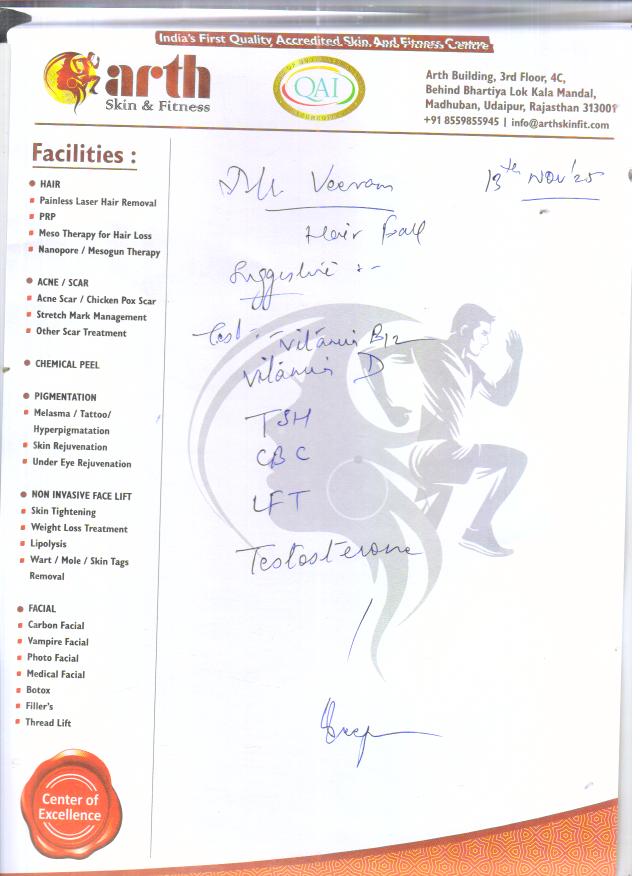 India's First Quality Accredited Skin And Fitness Centre
arth
Skin & Fitness
QAI
Arth Building, 3rd Floor, 4C,
Behind Bhartiya Lok Kala Mandal,
Madhuban, Udaipur, Rajasthan 313001
+91 8559855945 | info@arthskinfit.com
Facilities :
HAIR
Painless Laser Hair Removal
PRP
Meso Therapy for Hair Loss
Nanopore / Mesogun Therapy
ACNE / SCAR
Acne Scar / Chicken Pox Scar
Stretch Mark Management
Other Scar Treatment
CHEMICAL PEEL
PIGMENTATION
Melasma / Tattoo/
Hyperpigmatation
Skin Rejuvenation
Under Eye Rejuvenation
NON INVASIVE FACE LIFT
Skin Tightening
Weight Loss Treatment
Lipolysis
Wart / Mole / Skin Tags
Removal
FACIAL
Carbon Facial
Vampire Facial
Photo Facial
Medical Facial
Botox
Filler's
Thread Lift
Center of
Excellence
Veeram
13th Nov'25
Hair Fall
Test :- Vitamin B12
Vitamin D
TSH
CBC
LFT
Testosterone